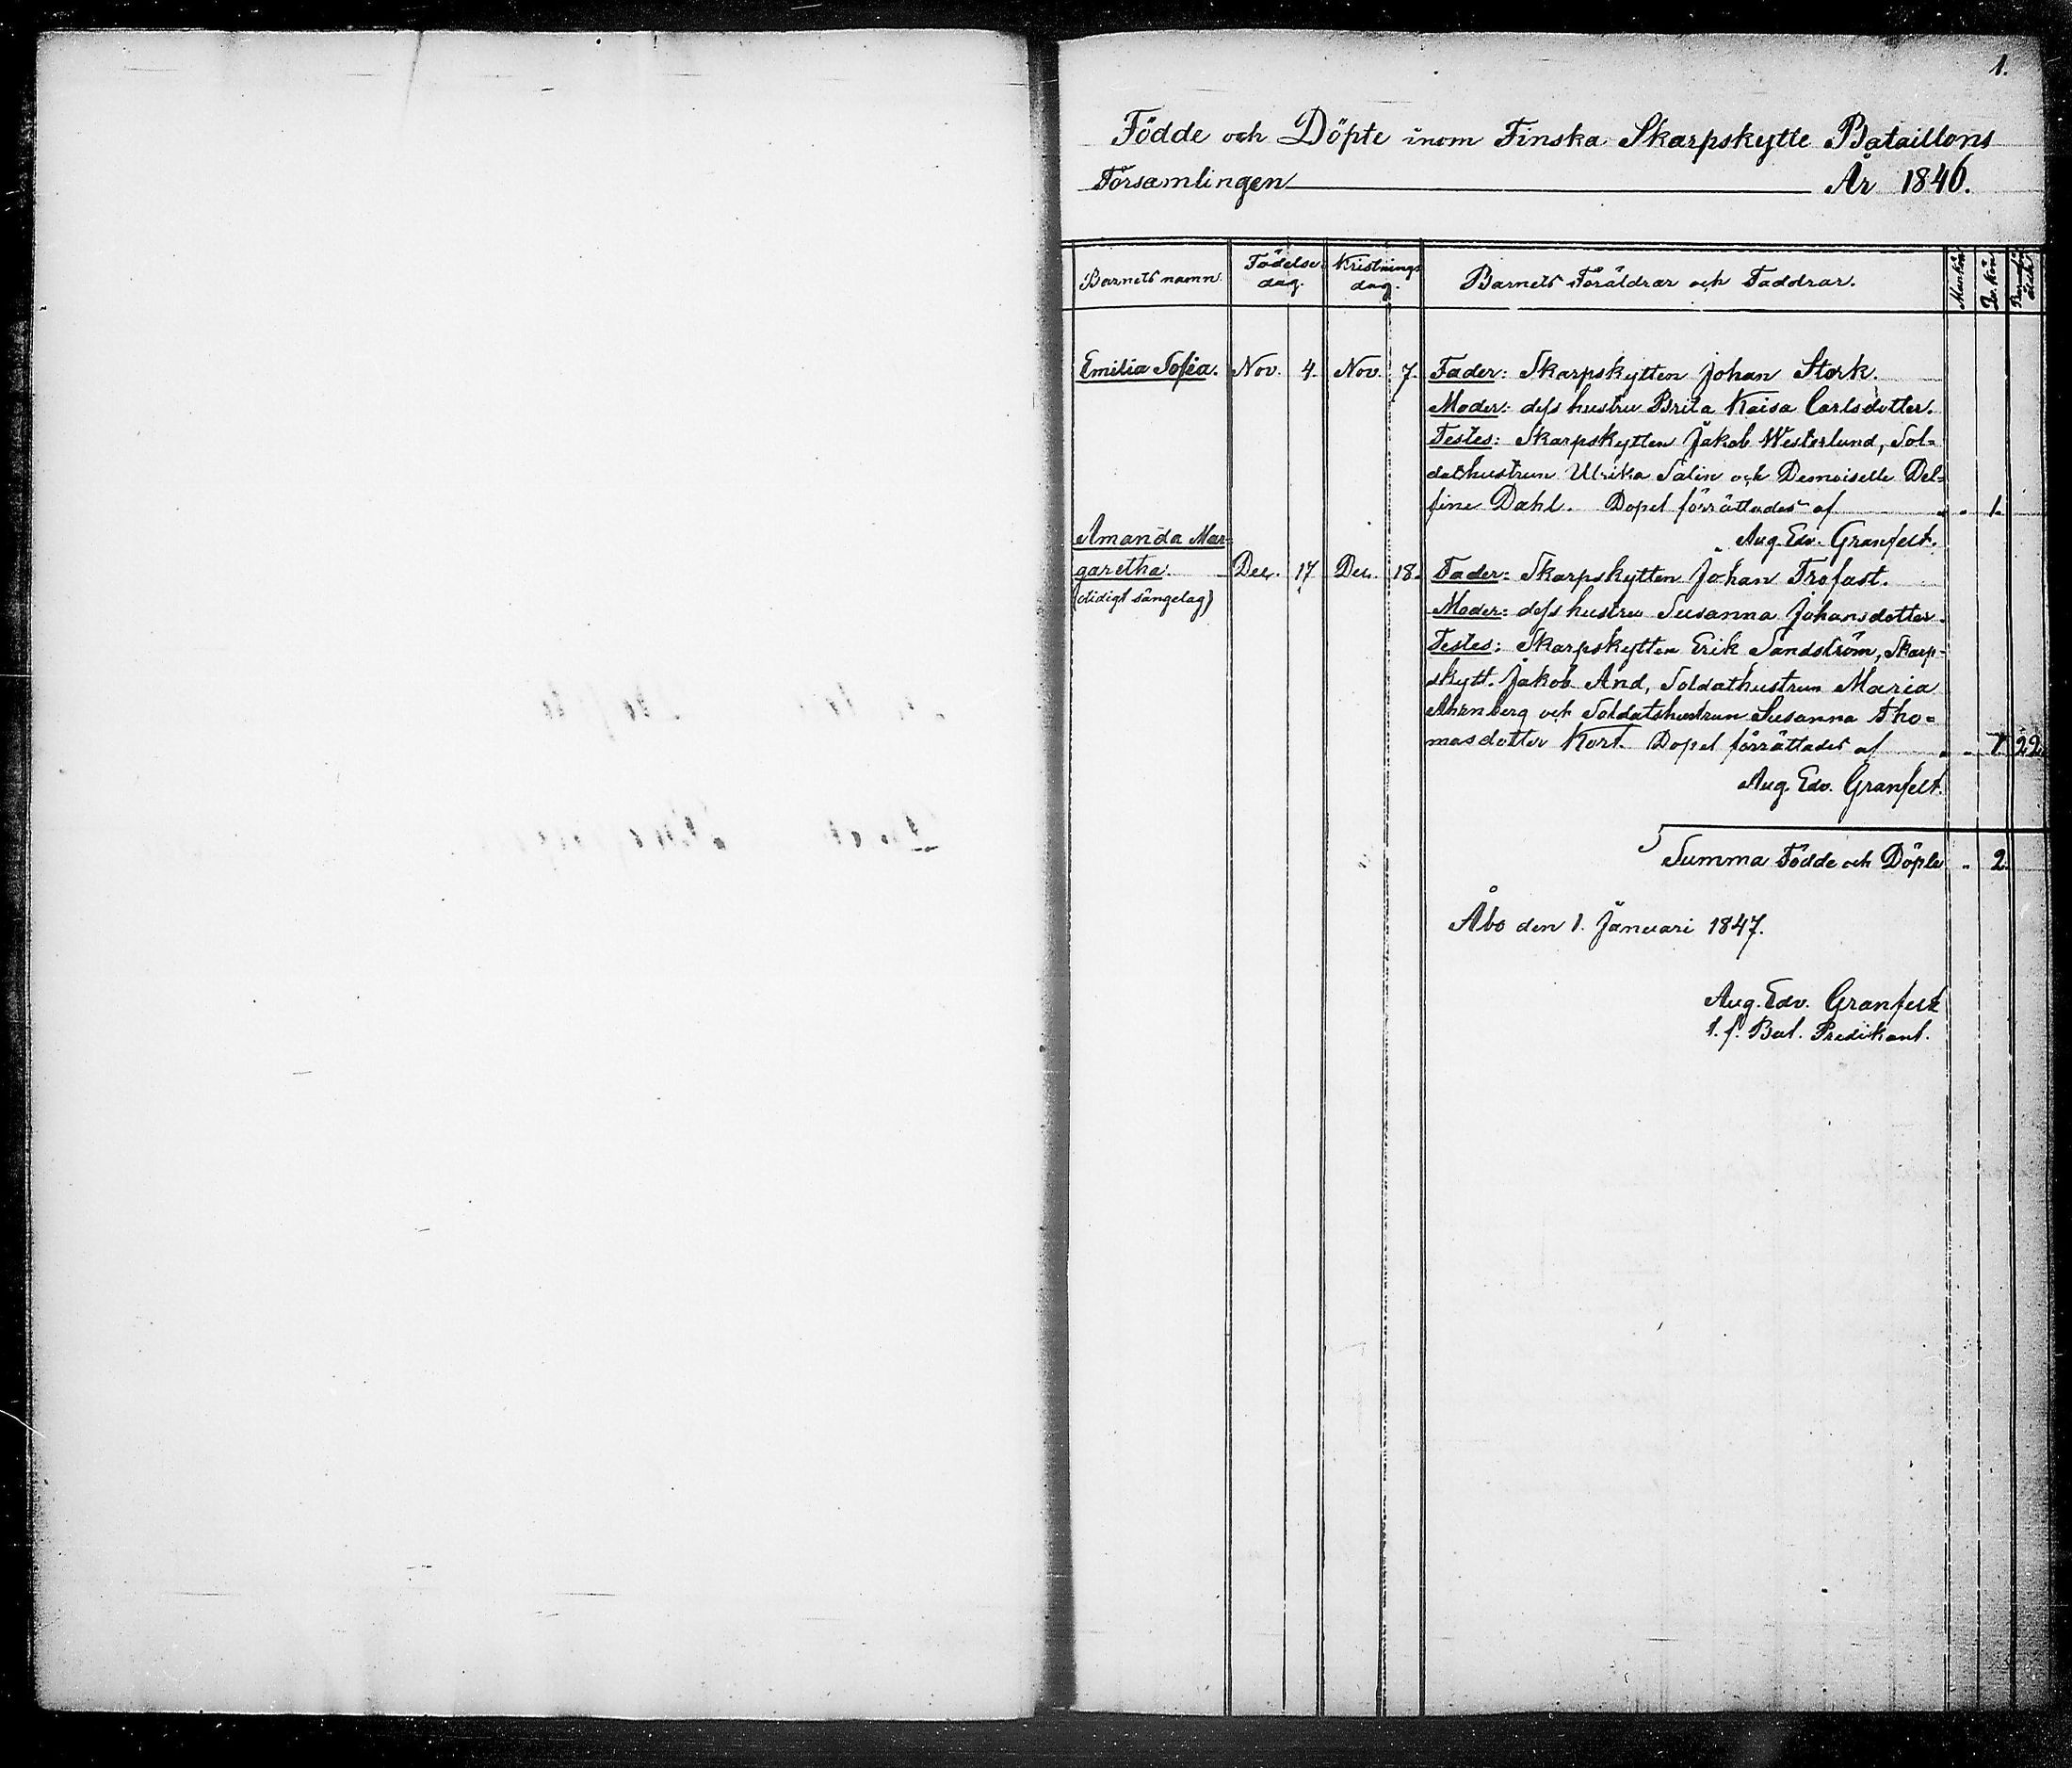 1.
Födde och Döpte inom Finska Skarpskytte Bataillons
Församlingen År 1846.
Barnets namn. Födelse dag. Kristnings dag. Barnets Föräldrar och Faddrar. Mankön Qv. Kön
Emilia Sofia. Nov. 4. Nov. 7. Fader: Skarpskytten Johan Stork.
Moder: dess hustru Brita Kaisa Carlsdotter.
Testes: Skarpskytten Jakob Westerlund, Sol=
dathustrun Ulrika Salin och Demoiselle Del=
fine Dahl. Dopet förrättades af " 1.
Aug. Edv. Granfelt.
Amanda Mar=
garetha. Dec. 17 Dec. 18. Fader: Skarpskytten Johan Trofast.
(otidigt sängelag)
Moder: dess hustru Susanna Johansdotter.
Testes: Skarpskytten Erik Sandström, Skarp-
skytt. Jakob And, Soldathustrun Maria
Ahrnberg och Soldatshustrun Susanna Tho=
masdotter Kort. Dopet förrättades af " 1. 22.
Aug. Edv. Granfelt.
Summa Födde och Döpte " 2.
Åbo den 1. Januari 1847.
Aug. Edv. Granfelt
t. f. Bat. Predikant.